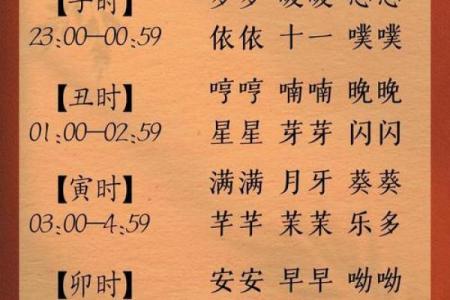 【子时】
23:00—00:59 依依 十一 噗噗
【丑时】 哼哼 喃喃 晚晚
01:00—02:59 星星 芽芽 闪闪
【寅时】 满满 月牙 葵葵
03:00—4:59 芊芊 茉茉 乐多
【卯时】 安安 早早 呦呦